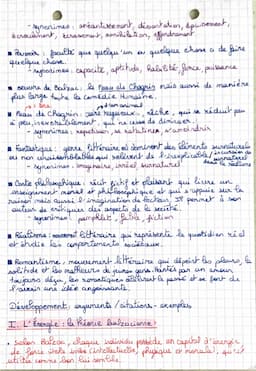 - synonymes : anéantissement, dévastation, épuisement,
écroulement, écrasement, annihilation, effondrement
■ Pouvoir : faculté que quelqu'un ou quelque chose a de faire
quelque chose.
- synonymes : capacité, aptitude, habilité, force, puissance
■ oeuvre de Balzac : la Peau de Chagrin mais aussi de manière
plus large toute la Comédie Humaine
■ Peau de Chagrin : cuir rugueux, sèche, qui se réduit peu
à peu, inexorablement, qui ne cesse de diminuer.
- synonymes : se ratatiner,
■ Fantastique : genre littéraire où dominent des éléments surnaturels
ou non vraisemblables qui relèvent de l'inexplicable / intrusion du
surnaturel
dans le réalisme
- synonymes : imaginaire, irréel, surnaturel
■ Conte philosophique : récit fictif et plaisant qui livre un
enseignement moral et philosophique et qui s'appuie sur la
raison mais aussi l'imagination du lecteur. Il permet à son
auteur de critiquer des aspects de la société.
- synonymes : pamphlet, fable, fiction
■ Réalisme : mouvement littéraire qui représente le quotidien réel
et étudie les comportements sociétaux.
■ Romantisme : mouvement littéraire qui dépeint les pleurs, la
solitude et les malheurs de jeunes gens hantés par un amour
toujours déçu, les romantiques idéalisent le passé et se font de
l'avenir une idée angoissante.
Développement : arguments / citations - exemples
I. L'énergie : la théorie balzacienne :
• Selon Balzac, chaque individu possède un capital d'énergie
de force vitale innée (intellectuelle, physique ou morale), qu'il
utilise comme bon lui semble.